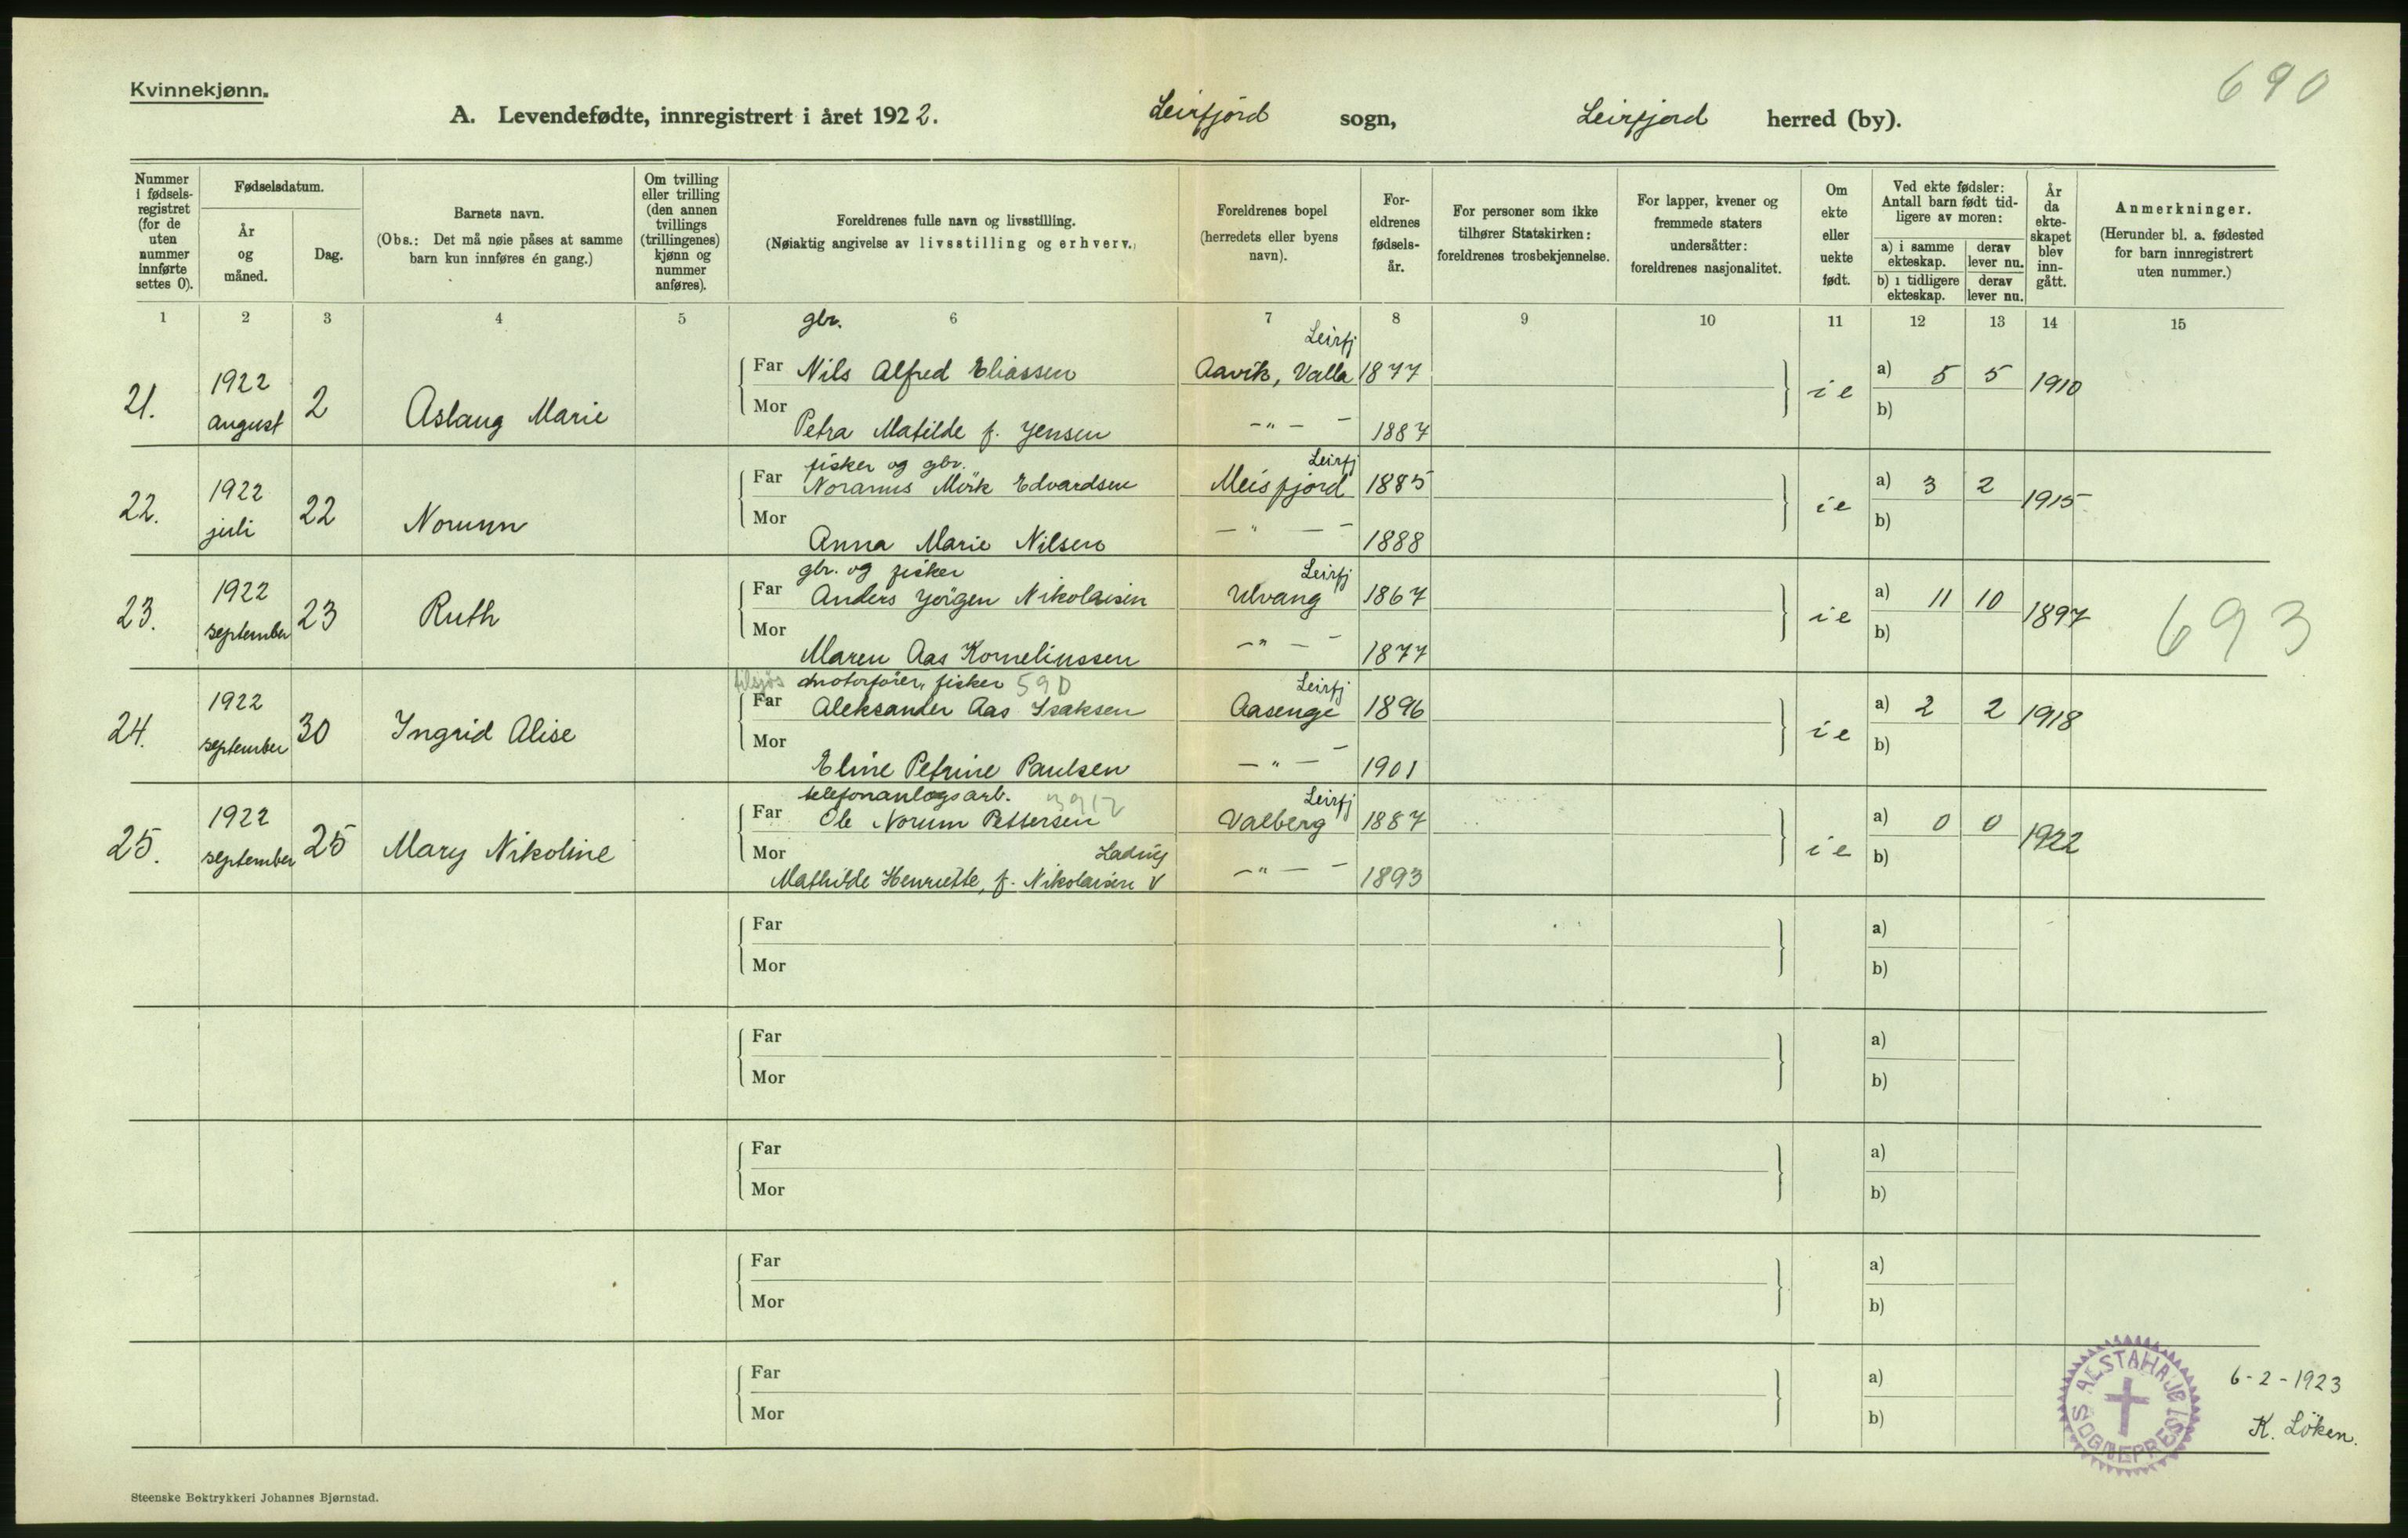 Kvinnekjønn.
690
A. Levendefødte, innregistrert i året 1922. Leirfjord sogn, Leirfjord herred (by).
Nummer i fødsels-registret (for de uten nummer innførte settes 0).
Fødselsdatum.
År og måned.
Dag.
Barnets navn.
(Obs.: Det må nøie påses at samme barn kun innføres én gang.)
Om tvilling eller trilling (den annen tvillings (trillingenes) kjønn og nummer anføres).
Foreldrenes fulle navn og livsstilling.
(Nøiaktig angivelse av livsstilling og erhverv.)
Foreldrenes bopel (herredets eller byens navn).
For-eldrenes fødsels-år.
For personer som ikke tilhører Statskirken: foreldrenes trosbekjennelse.
For lapper, kvener og fremmede staters undersåtter: foreldrenes nasjonalitet.
Om ekte eller uekte født.
Ved ekte fødsler: Antall barn født tid-ligere av moren:
a) i samme ekteskap.
derav lever nu.
b) i tidligere ekteskap.
derav lever nu.
År da ekte-skapet blev inn-gått.
Anmerkninger.
(Herunder bl. a. fødested for barn innregistrert uten nummer.)
1 2 3 4 5 6 7 8 9 10 11 12 13 14 15
gbr.
Leirfj
21. 1922 august 2 Aslaug Marie
Far Nils Alfred Eliassen Aavik, Valla 1877
Mor Petra Matilde f. Jensen -"- - 1887
i e a) 5 5 1910
b)
fisker og gbr.
Leirfj
22. 1922 juli 22 Norunn
Far Noranus Mörk Edvardsen Meisfjord 1885
Mor Anna Marie Nilsen -"- - 1888
i e a) 3 2 1915
b)
gbr. og fisker
Leirfj
23. 1922 september 23 Ruth
Far Anders Jörgen Nikolaisen Ulvang 1867
Mor Maren Aas Korneliussen -"- - 1877
i e a) 11 10 1897
b)
693
motorfører, fisker 59D
Leirfj
24. 1922 september 30 Ingrid Alise
Far Aleksander Aas Isaksen Aasenge 1896
Mor Eline Petrine Paulsen -"- - 1901
i e a) 2 2 1918
b)
telefonanlægsarb. 3912
Leirfj
25. 1922 september 25 Mary Nikoline
Far Ole Norum Pettersen Valberg 1887
Mor Mathilde Henriette, f. Nikolaisen -"- - 1893
i e a) 0 0 1922
b)
Far a)
Mor b)
Far a)
Mor b)
Far a)
Mor b)
Far a)
Mor b)
Far a)
Mor b)
ALSTAHAUG SOGNEPREST
6-2-1923
K. Löken.
Steenske Boktrykkeri Johannes Bjørnstad.